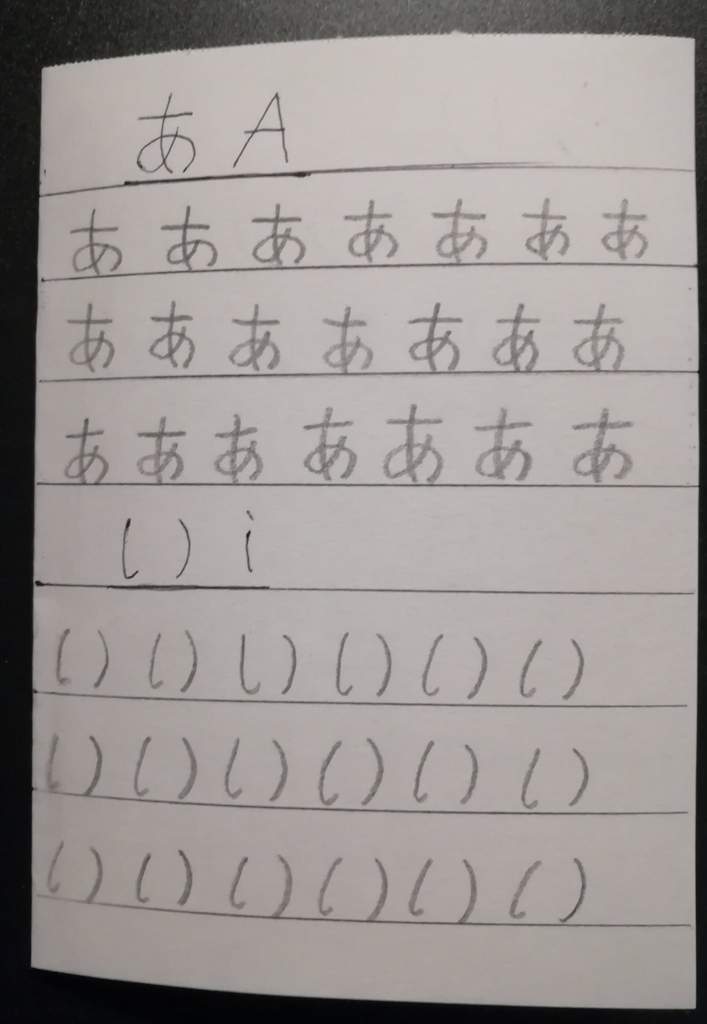 あ A
あ あ あ あ あ あ あ
あ あ あ あ あ あ あ
あ あ あ あ あ あ あ
い i
い い い い い い
い い い い い い
い い い い い い